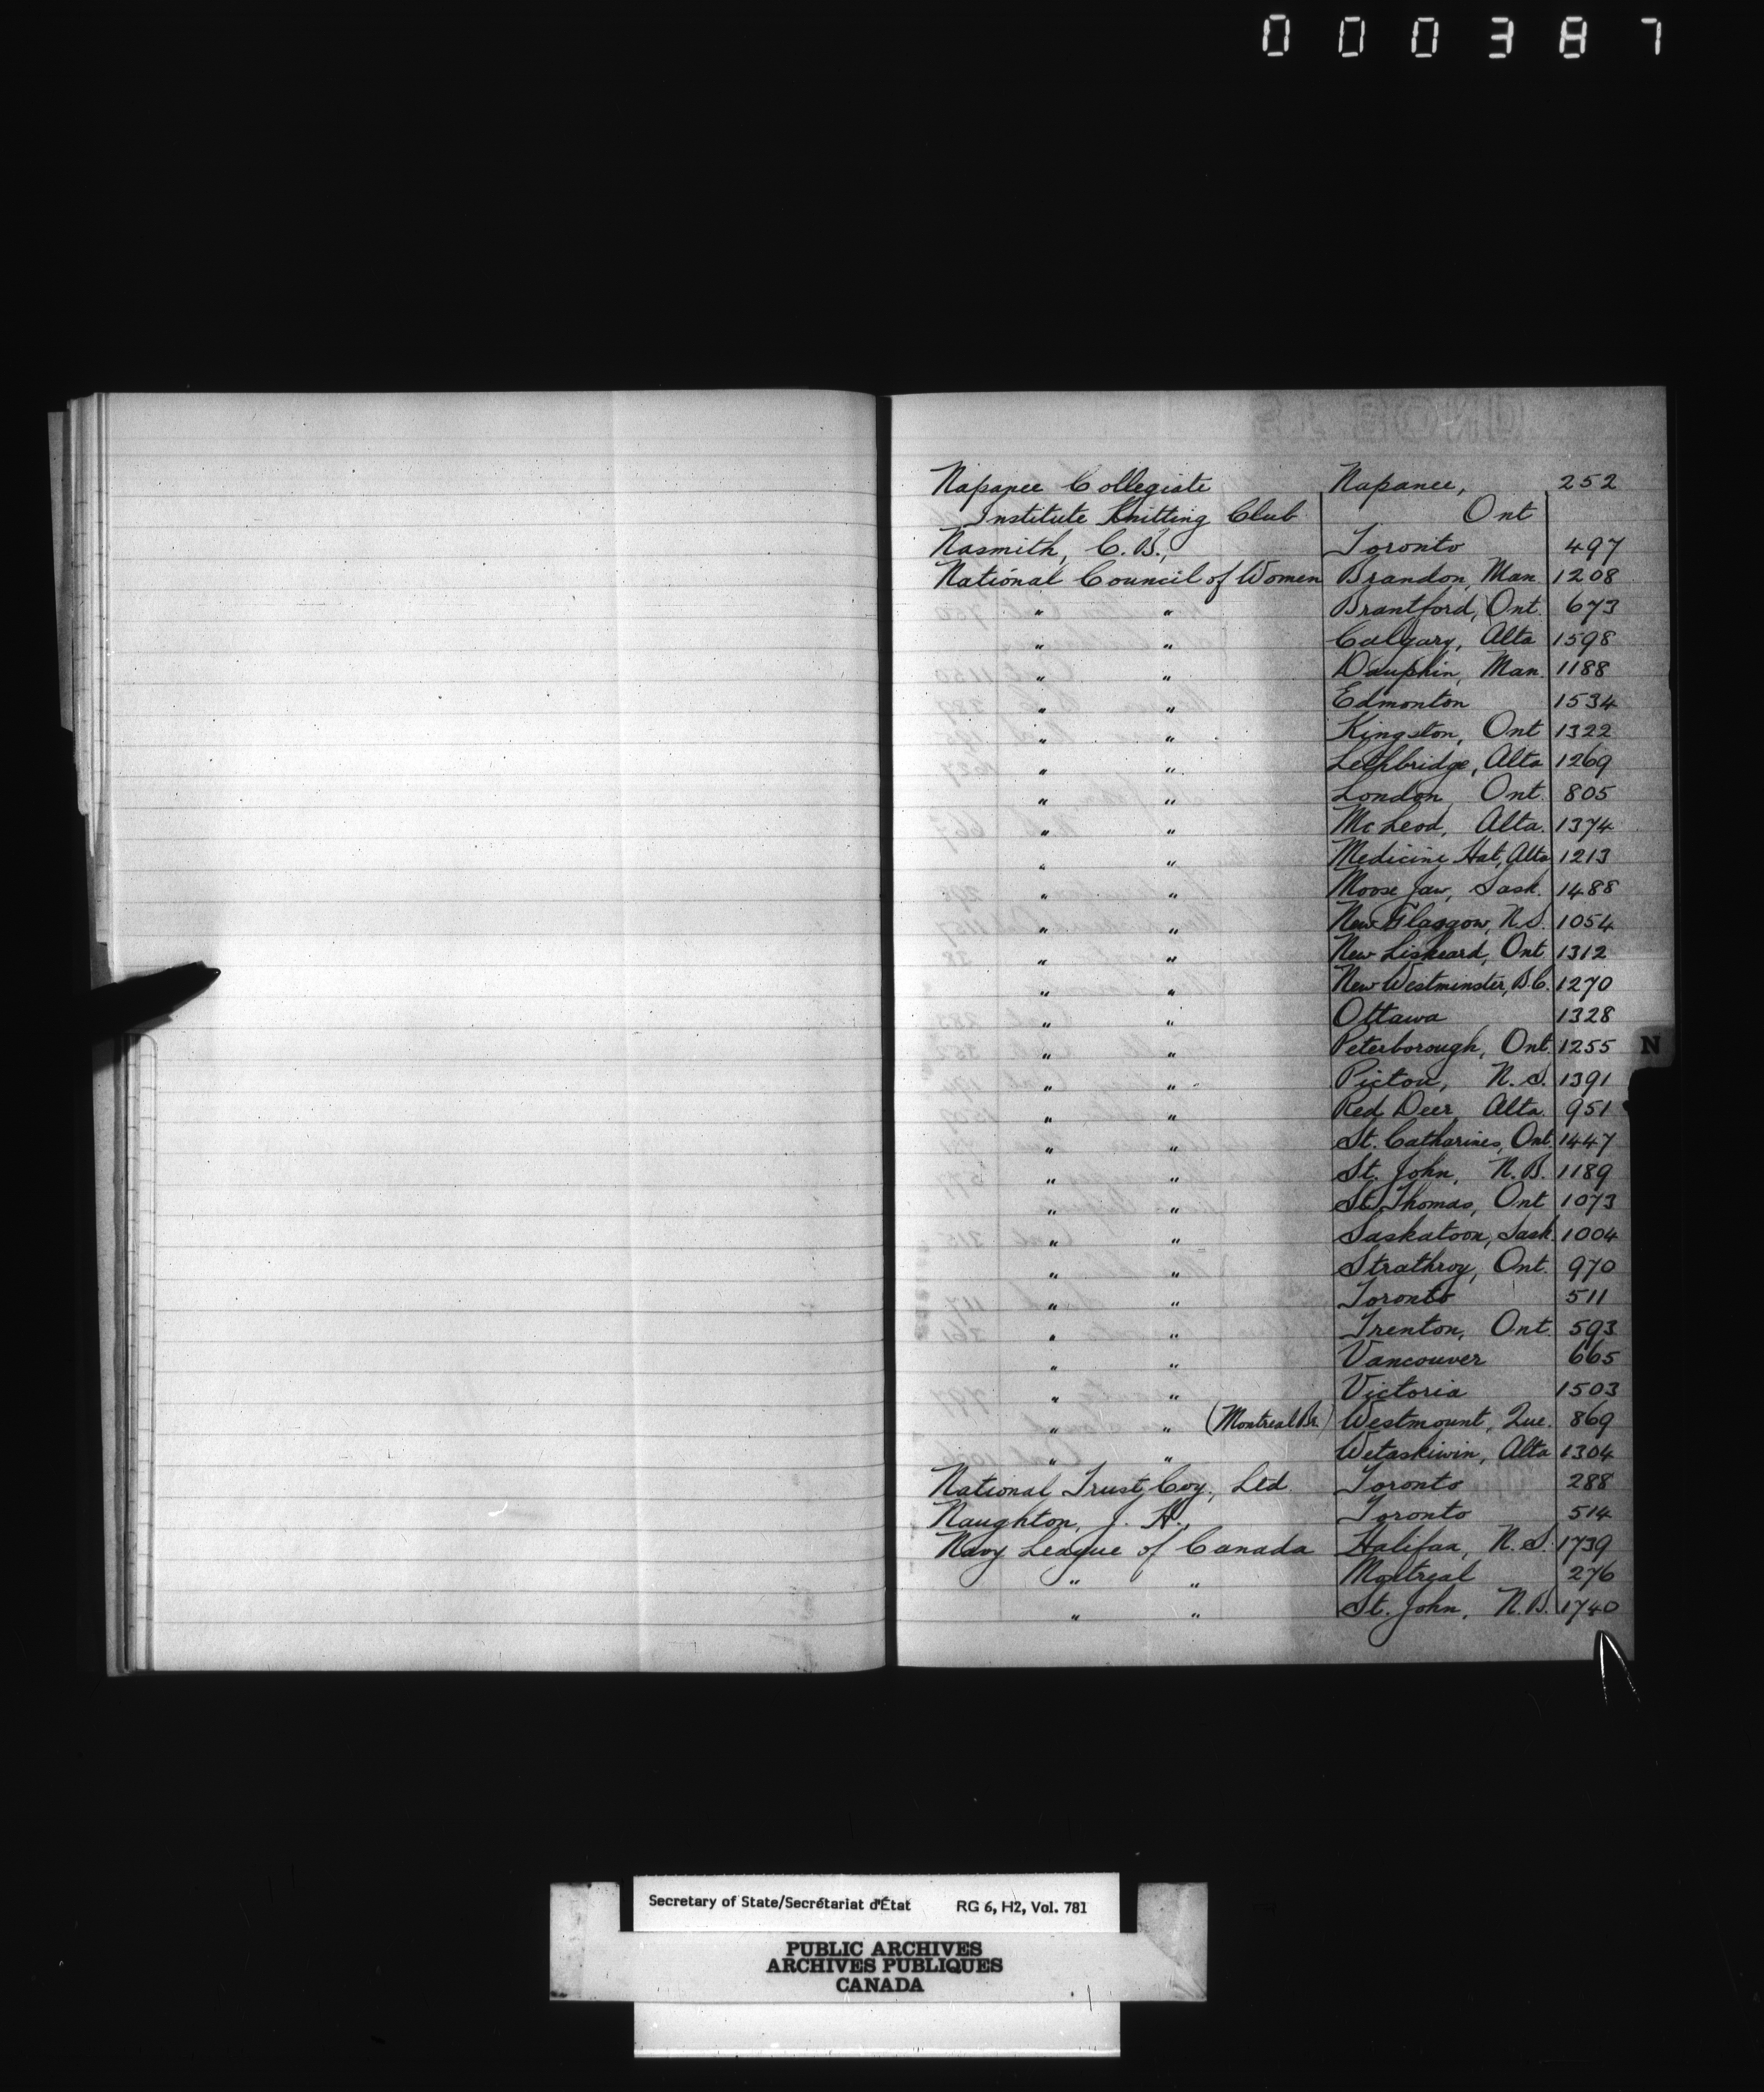 000387
Napanee Collegiate Napanee, 252
Institute Knitting Club Ont
Nasmith, C. B., Toronto 497
National Council of Women Brandon, Man. 1208
" " Brantford, Ont. 673
" " Calgary, Alta 1598
" " Dauphin, Man. 1188
" " Edmonton 1534
" " Kingston, Ont 1322
" " Lethbridge, Alta 1269
" " London, Ont. 805
" " McLeod, Alta. 1374
" " Medicine Hat, Alta 1213
" " Moose Jaw, Sask. 1488
" " New Glasgow, N.S. 1054
" " New Liskeard, Ont 1312
" " New Westminster, B.C. 1270
" " Ottawa 1328
" " Peterborough, Ont. 1255
" " Pictou, N.S. 1391
" " Red Deer, Alta. 951
" " St. Catharines, Ont. 1447
" " St. John, N.B. 1189
" " St. Thomas, Ont 1073
" " Saskatoon, Sask. 1004
" " Strathroy, Ont. 970
" " Toronto 511
" " Trenton, Ont. 593
" " Vancouver 665
" " Victoria 1503
" " (Montreal Br.) Westmount, Que. 869
" " Wetaskiwin, Alta 1304
National Trust Coy., Ltd. Toronto 288
Naughton, J. H., Toronto 514
Navy League of Canada Halifax, N.S. 1739
" " Montreal 276
" " St. John, N.B. 1740
N
Secretary of State/Secrétariat d'État RG 6, H2, Vol. 781
PUBLIC ARCHIVES
ARCHIVES PUBLIQUES
CANADA